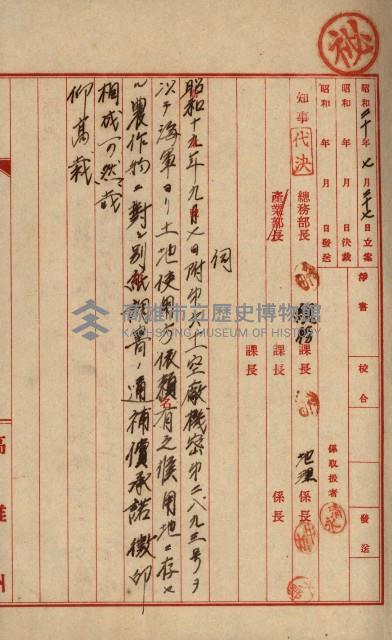 秘
昭和二十年七月二十七日立案
昭和 年 月 日決裁
昭和 年 月 日發送
淨書
校合
發送
知事
代決
總務部長
產業部長
總務課長
課長
課長
係取扱者
地理係長
係長
伺
昭和十九年九月七日附第六十一空廠機密第二八九三号ヲ
以テ海軍ヨリ土地使用方依頼有之候用地ニ存セ
ル農作物ニ對シ別紙調書ノ通補償承諾徴印
相成可然哉
仰高裁
高雄市立歷史博物館
KAOHSIUNG MUSEUM OF HISTORY
高雄州